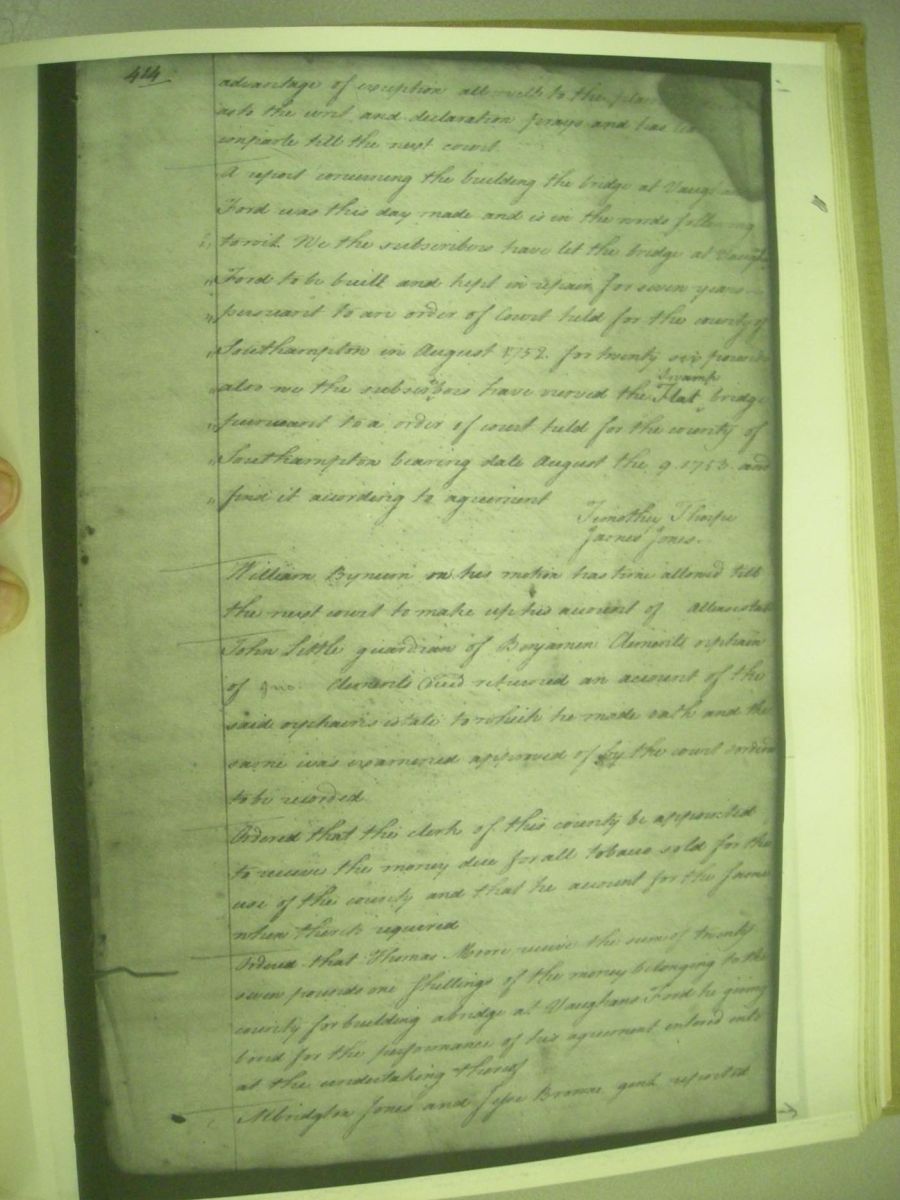 414
advantage of exception all well to the
as to the writ and declaration prays and has
imparle till the next court
A report concerning the building the bridge at
Ford was this day made and is in the words following
towit We the subscribers have let the bridge at
Ford to be built and kept in repair for seven years
persuant to an order of Court held for the county of
Southampton in August 1752 for twenty six pounds
Swamp
also we the subscribers have vewed the Flat bridge
pursuant to a order of court held for the county of
Southampton bearing date August the 9 1753 and
find it acording to agreement
Timothy Thorpe
James Jones.
William Bynum on his motion has time allowed till
the next court to make up his account of
John Little guardian of Benjamin Clements orphain
of Jno. Clements returned an account of the
said orphains estate to which he made oath and the
same was examined approved of by the court
to be recorded
Ordered that the clerk of this county be appointed
to receive the money due for all tobacco sold for the
use of the county and that he account for the same
when thereto required
Ordered that Thomas Moore receive the sum of twenty
seven pounds one shillings of the money belonging to the
county for building a bridge at Vaughans Ford he giving
bond for the performance of his agreement entered into
at the undertaking thereof
Albridgton Jones and Jesse Browne gent reported